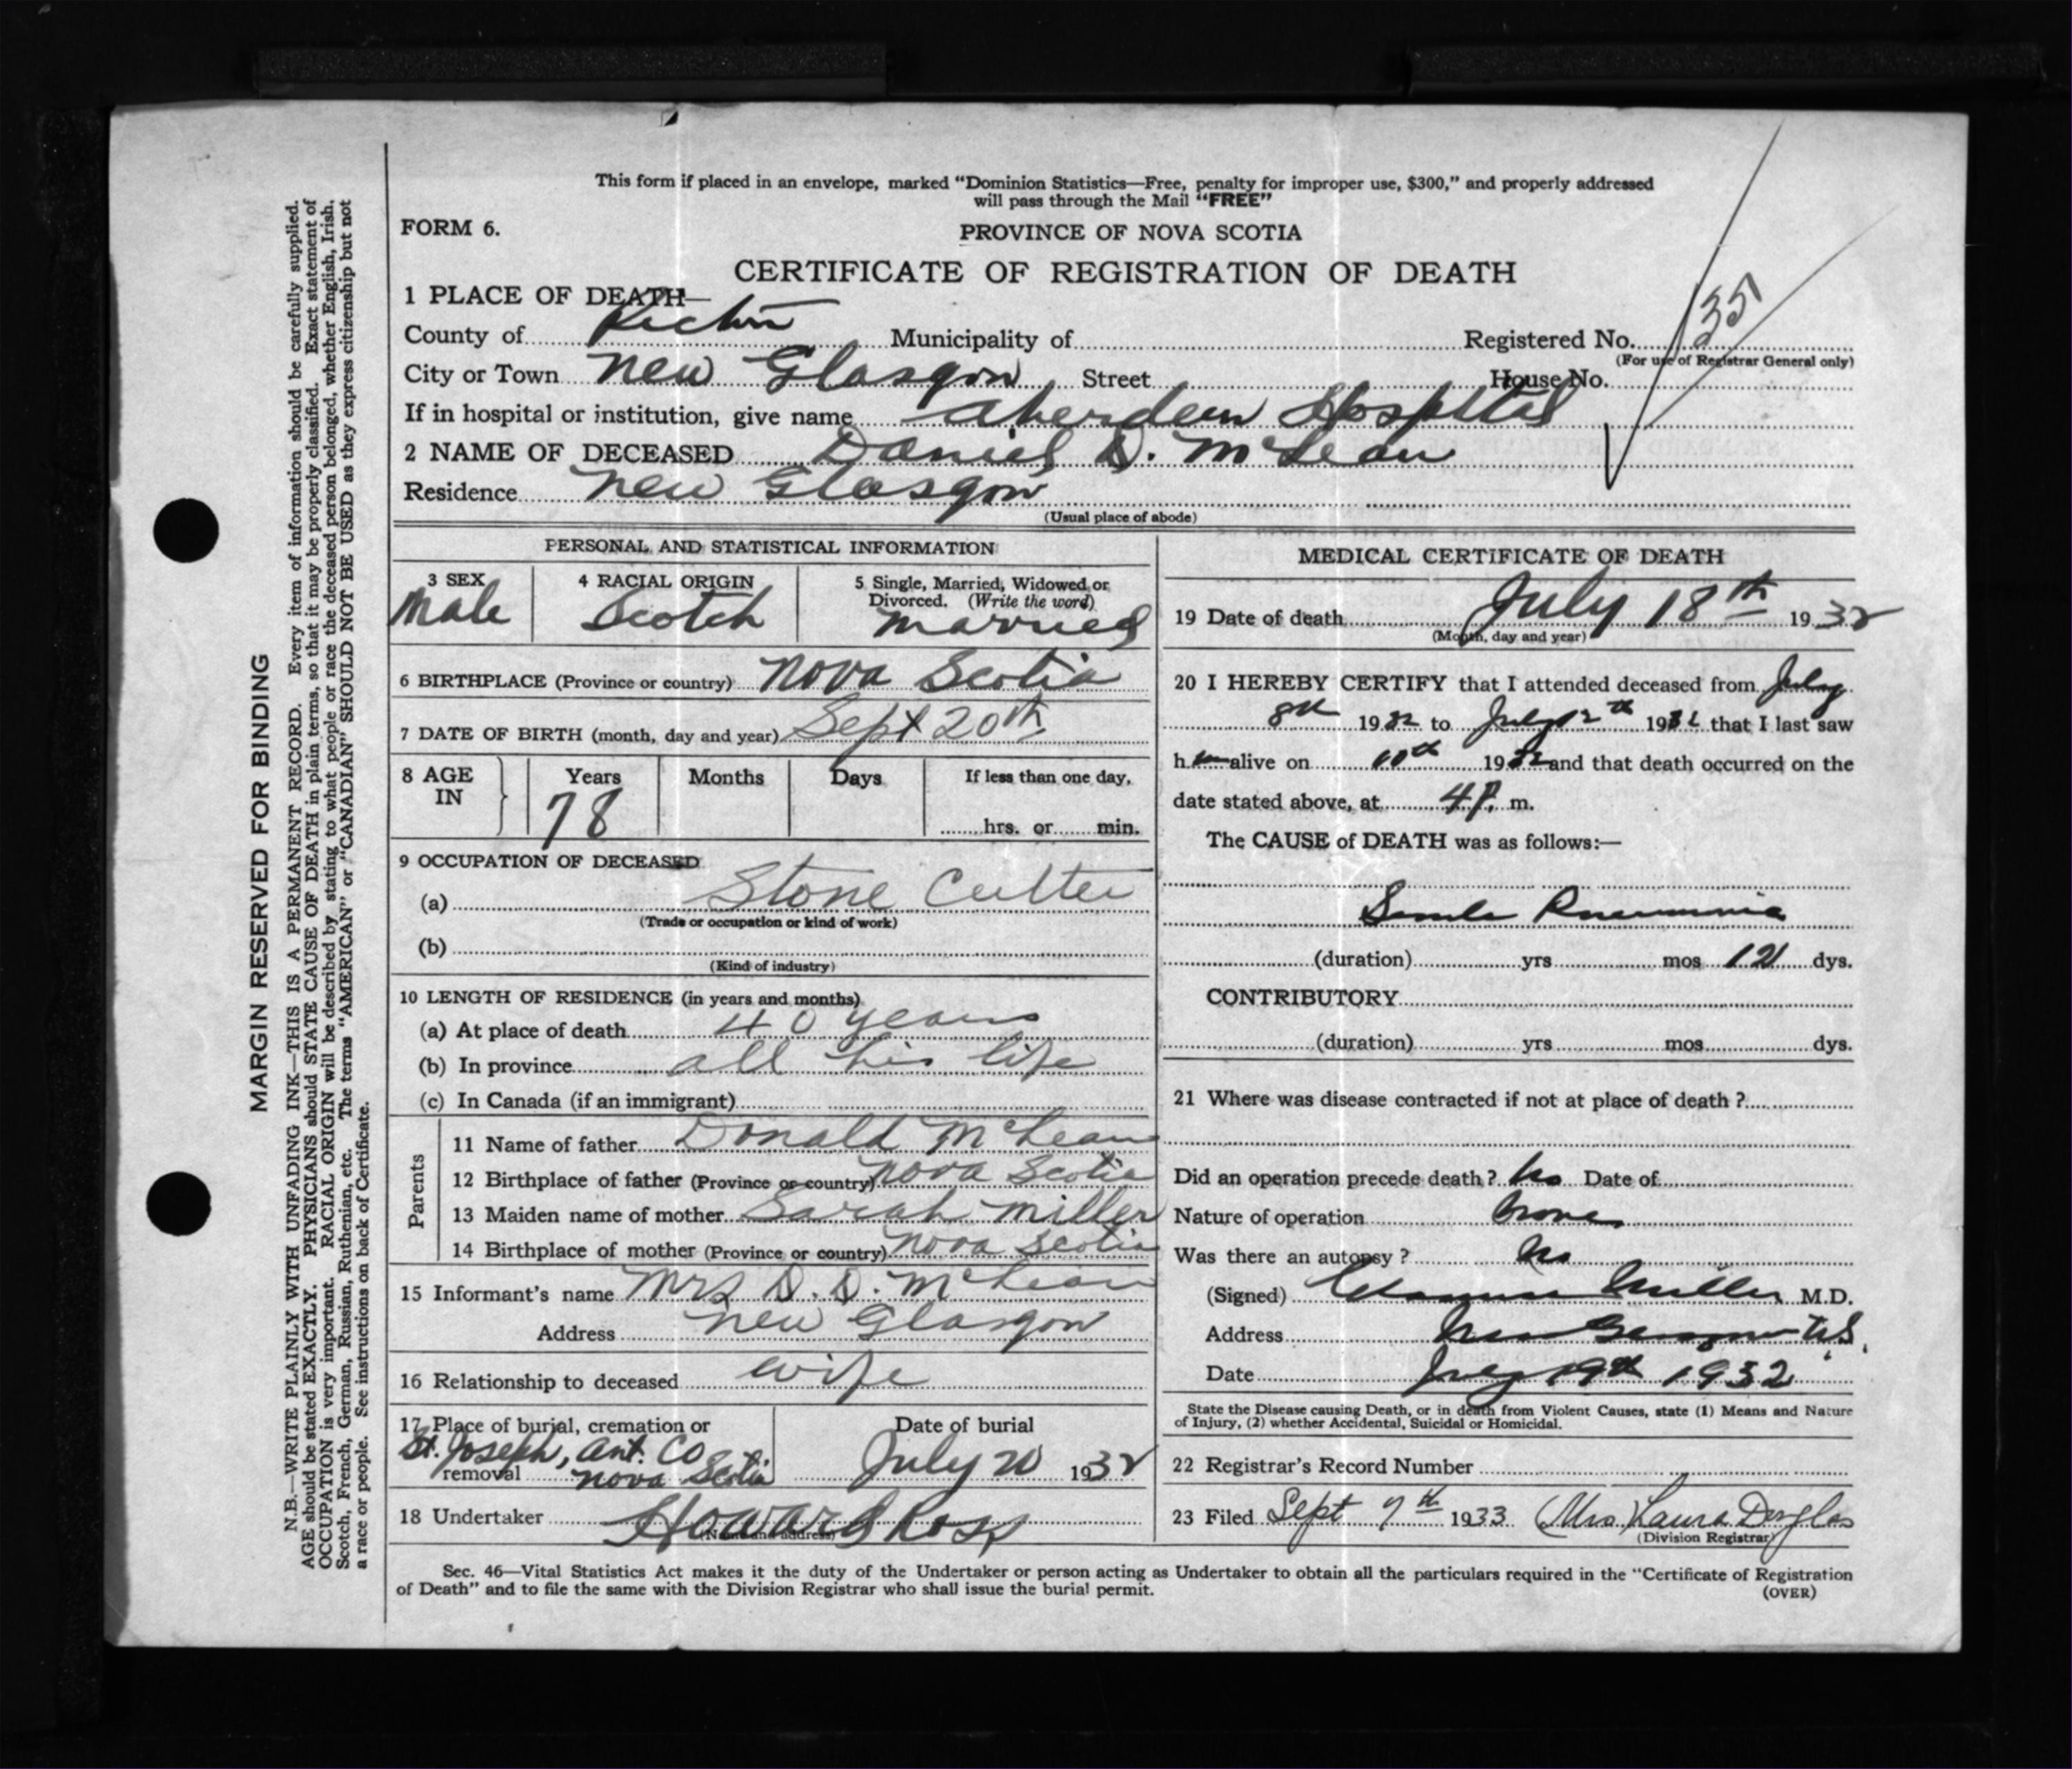 This form if placed in an envelope, marked "Dominion Statistics—Free, penalty for improper use, $300," and properly addressed
will pass through the Mail "FREE"
FORM 6.
PROVINCE OF NOVA SCOTIA
CERTIFICATE OF REGISTRATION OF DEATH
1 PLACE OF DEATH—
County of Pictou Municipality of Registered No. 135
(For use of Registrar General only)
City or Town New Glasgow Street House No.
If in hospital or institution, give name Aberdeen Hospital
2 NAME OF DECEASED Daniel D. McLean
Residence New Glasgow
(Usual place of abode)
PERSONAL AND STATISTICAL INFORMATION
3 SEX 4 RACIAL ORIGIN 5 Single, Married, Widowed or
Divorced. (Write the word)
Male Scotch Married
6 BIRTHPLACE (Province or country) Nova Scotia
7 DATE OF BIRTH (month, day and year) Sept 20th
8 AGE IN Years Months Days If less than one day,
78
hrs. or min.
9 OCCUPATION OF DECEASED
(a) Stone Cutter
(Trade or occupation or kind of work)
(b)
(Kind of industry)
10 LENGTH OF RESIDENCE (in years and months)
(a) At place of death 40 years
(b) In province all his life
(c) In Canada (if an immigrant)
Parents
11 Name of father Donald McLean
12 Birthplace of father (Province or country) Nova Scotia
13 Maiden name of mother Sarah Miller
14 Birthplace of mother (Province or country) Nova Scotia
15 Informant's name Mrs D. D. McLean
Address New Glasgow
16 Relationship to deceased wife
17 Place of burial, cremation or Date of burial
St. Joseph, Ant. Co
removal Nova Scotia July 20 1932
18 Undertaker Howard Ross
(Name and address)
MEDICAL CERTIFICATE OF DEATH
19 Date of death July 18th 1932
(Month, day and year)
20 I HEREBY CERTIFY that I attended deceased from July
8th 1932 to July 12th 1932 that I last saw
h im alive on 1932 and that death occurred on the
date stated above, at 4 P. m.
The CAUSE of DEATH was as follows:—
Senile Pneumonia
(duration) yrs mos 12 dys.
CONTRIBUTORY
(duration) yrs mos dys.
21 Where was disease contracted if not at place of death ?
Did an operation precede death ? No Date of
Nature of operation None
Was there an autopsy ? No
(Signed) Miller M.D.
Address New Glasgow N.S.
Date July 19th 1932
State the Disease causing Death, or in death from Violent Causes, state (1) Means and Nature
of Injury, (2) whether Accidental, Suicidal or Homicidal.
22 Registrar's Record Number
23 Filed Sept 7th 1933 (Mrs.) Laura Douglas
(Division Registrar)
Sec. 46—Vital Statistics Act makes it the duty of the Undertaker or person acting as Undertaker to obtain all the particulars required in the "Certificate of Registration
of Death" and to file the same with the Division Registrar who shall issue the burial permit.
(OVER)
MARGIN RESERVED FOR BINDING
N.B.—WRITE PLAINLY WITH UNFADING INK—THIS IS A PERMANENT RECORD. Every item of information should be carefully supplied.
AGE should be stated EXACTLY. PHYSICIANS should STATE CAUSE OF DEATH in plain terms, so that it may be properly classified. Exact statement of
OCCUPATION is very important. RACIAL ORIGIN will be described by stating to what people or race the deceased person belonged, whether English, Irish,
Scotch, French, German, Russian, Ruthenian, etc. The terms "AMERICAN" or "CANADIAN" SHOULD NOT BE USED as they express citizenship but not
a race or people. See instructions on back of Certificate.